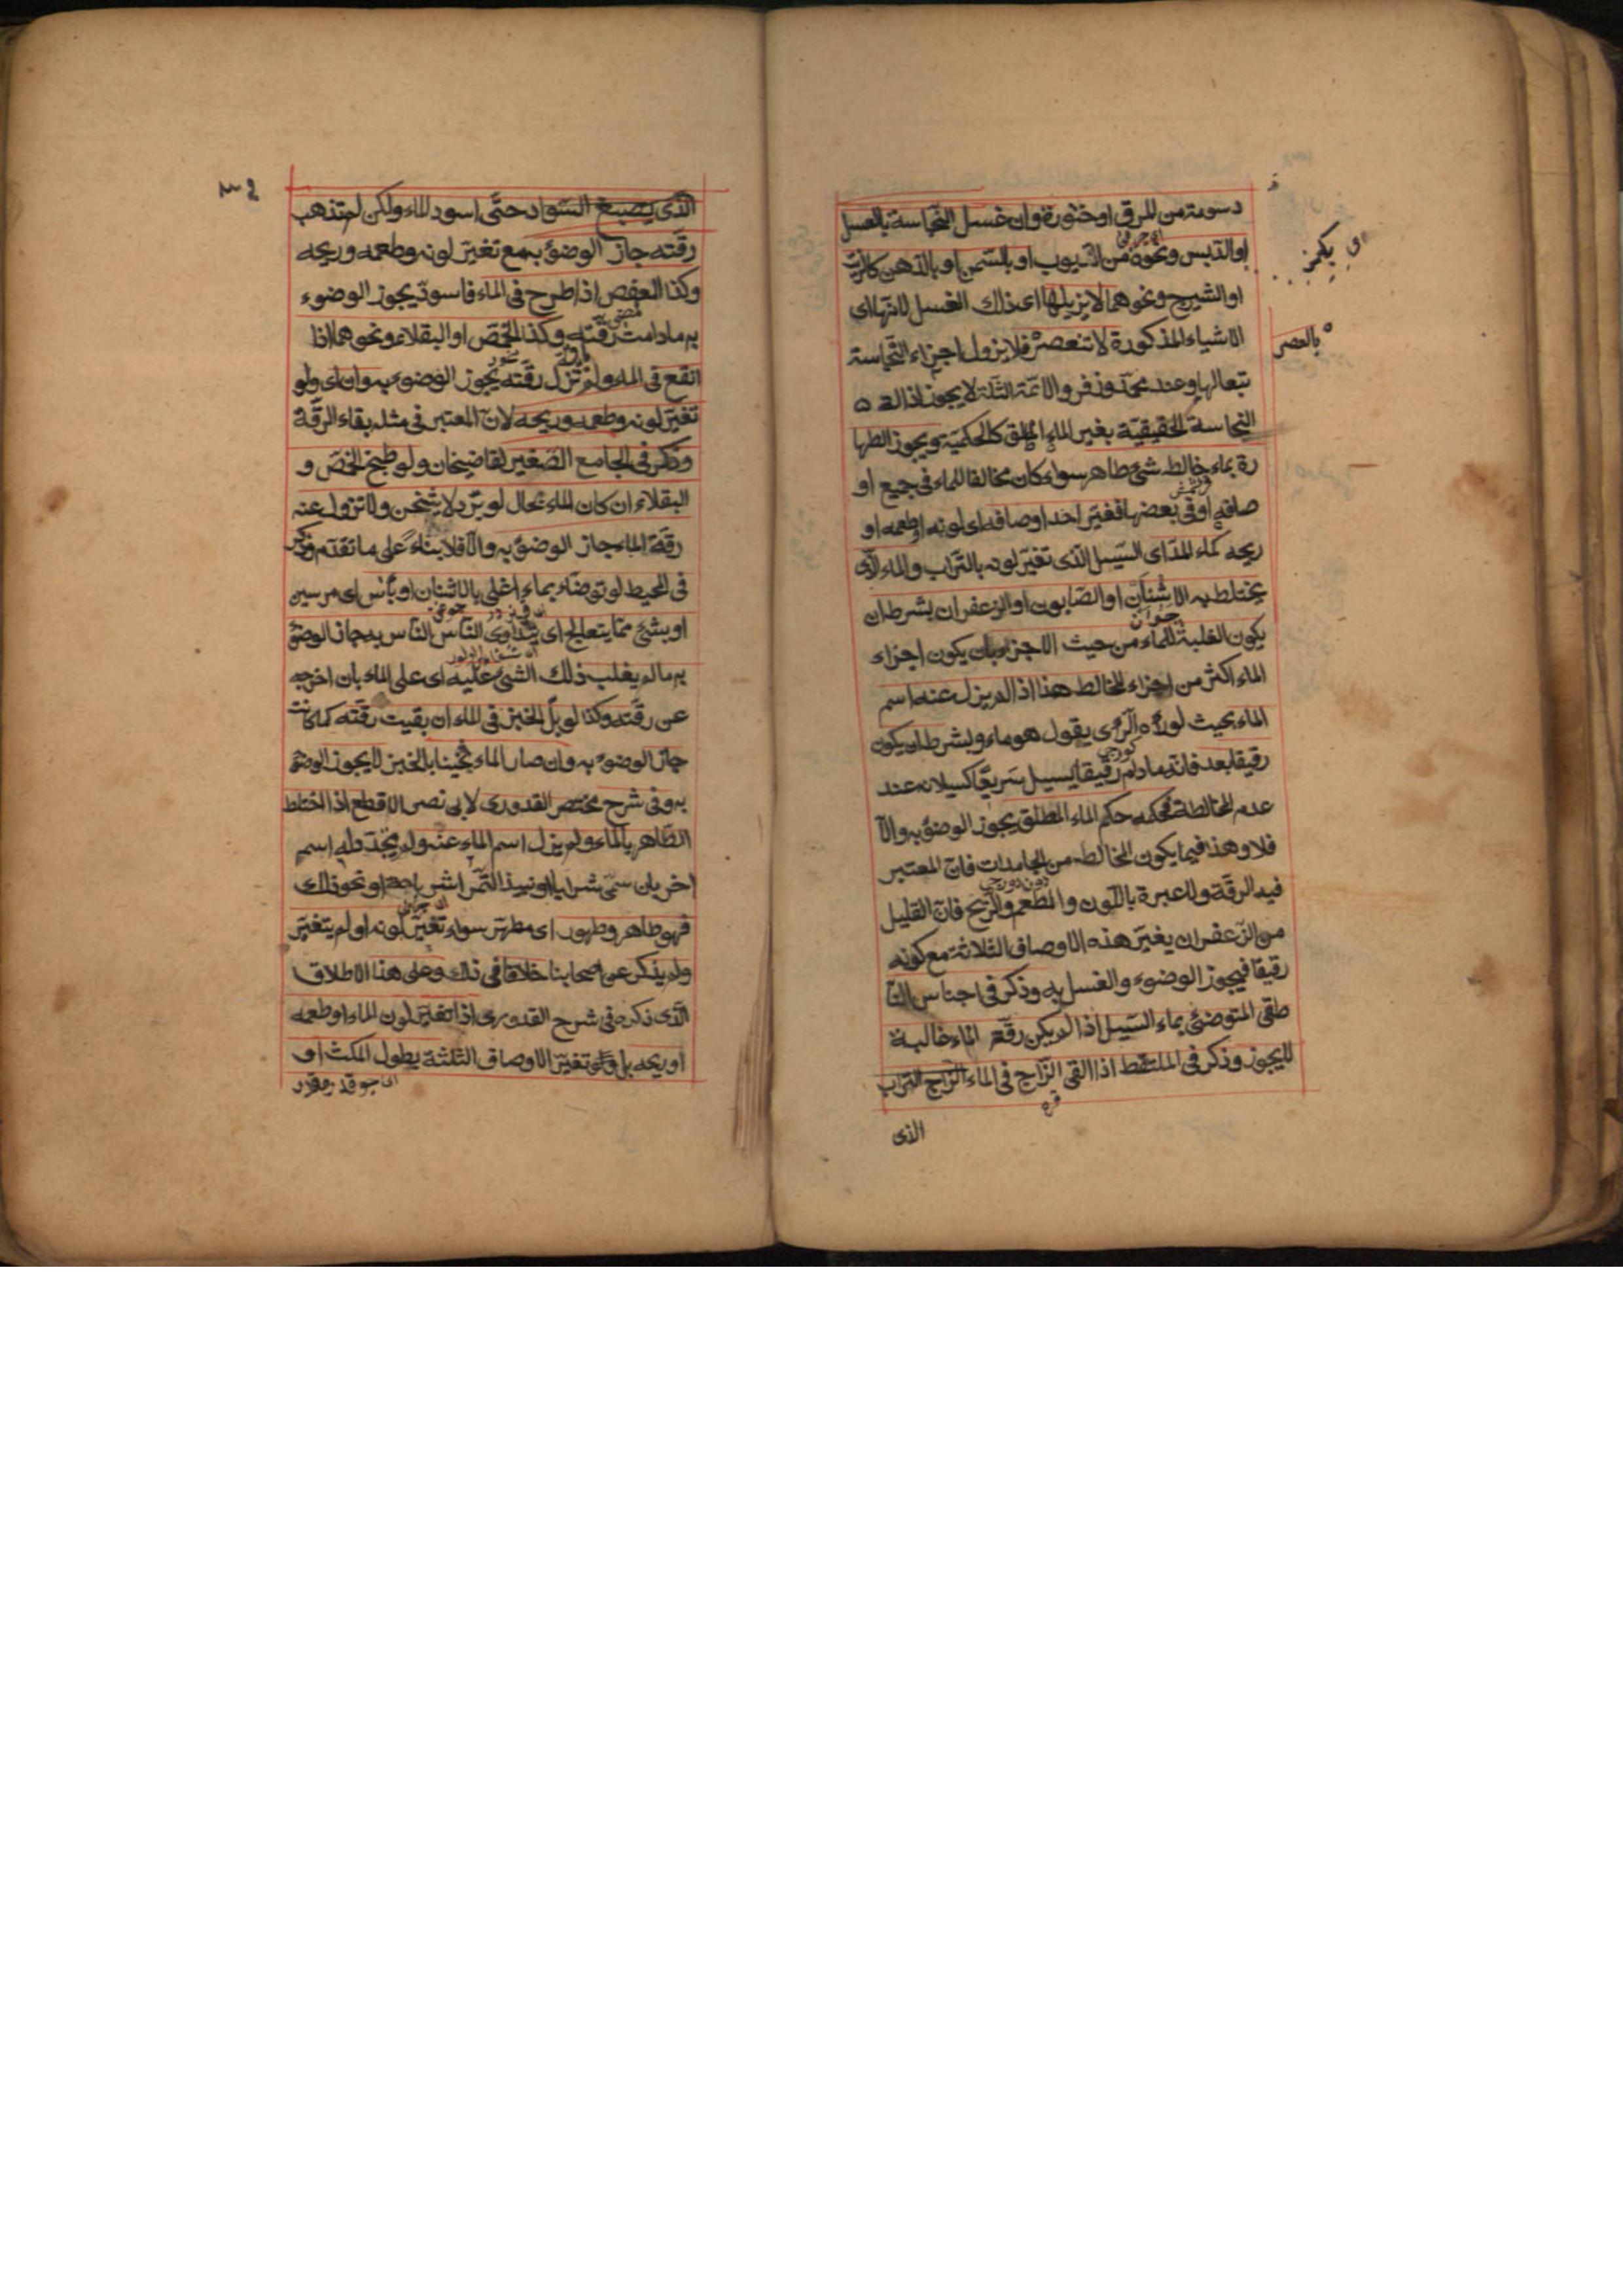 دسومة من المرق او خثورة وان غسل النجاسة بالعسل
او الدبس ونحوه من الديوب او بالسمن او بالدهن كالزيت
او الشيرج ونحوهما لا يزيلها اى ذلك الغسل لانها اى
الاشياء المذكورة لا تنعصر فلا يزول اجزاء النجاسة
بالعصر
تبعا لها وعند محمد وزفر والائمة الثلثة لا يجوز ازالة
النجاسة الحقيقية بغير الماء المطلق كالحكمية ويجوز الطها
رة بماء خالطه شئ طاهر سواء كان مخالفا للماء فى جميع او
صافه او فى بعضها فغير احد اوصافه اى لونه او طعمه او
ريحه كماء المد اى السيل الذى تغير لونه بالتراب والماء الذى
يختلط به الاشنان او الصابون او الزعفران بشرط ان
يكون الغلبة للماء من حيث الاجزاء بان يكون اجزاء
الماء اكثر من اجزاء المخالط هذا اذا لم يزل عنه اسم
الماء بحيث لو رآه الرائى يقول هو ماء وبشرط ان يكون
رقيقا بعد فانه ما دام رقيقا يسيل سريعا كسيلانه عند
عدم المخالطة فحكمه حكم الماء المطلق يجوز الوضوء به والا
فلا وهذا فيما يكون المخالط من الجامدات فان المعتبر
فيه الرقة ولا عبرة باللون والطعم والريح فان القليل
من الزعفران يغير هذه الاوصاف الثلاثة مع كونه
رقيقا فيجوز الوضوء والغسل به وذكر فى اجناس النا
طفى المتوضئ بماء السيل اذا لم يكن رقة الماء غالبة
لا يجوز وذكر فى الملتقط اذا القى الزاج فى الماء الزاج التراب
الذى
الذى يصبغ السواد حتى اسود الماء ولكن لم تذهب
رقته جاز الوضوء به مع تغير لونه وطعمه وريحه
وكذا العفص اذا طرح فى الماء فاسود يجوز الوضوء
به ما دامت رقته وكذا الحمص او البقلاء ونحوهما اذا
انقع فى الماء ولم تزل رقته يجوز الوضوء به وان اى ولو
تغير لونه وطعمه وريحه لان المعتبر فى مثله بقاء الرقة
وذكر فى الجامع الصغير لقاضيخان ولو طبخ الحمص و
البقلاء ان كان الماء بحال لو برد لا يثخن ولا تزول عنه
رقة الماء جاز الوضوء به والا فلا بناء على ما تقدم وذكر
فى المحيط لو توضاء بماء اغلى بالاشنان او بآس اى مرسين
او بشئ مما يتعالج اى يتداوى الناس الناس به جاز الوضوء
به ما لم يغلب ذلك الشئ عليه اى على الماء بان اخرجه
عن رقته وكذا لو بل الخبز فى الماء ان بقيت رقته كما كانت
جاز الوضوء به وان صار الماء ثخينا بالخبز لا يجوز الوضوء
به وفى شرح مختصر القدورى لابى نصر الاقطع اذا اختلط
الطاهر بالماء ولم يزل اسم الماء عنه ولم يتجدد له اسم
اخر بان سمى شرابا او نبيذ التمر اشراجه او نحو ذلك
فهو طاهر وطهور اى مطهر سواء تغير لونه او لم يتغير
ولم يذكر عن اصحابنا خلافا فى ذلك وعلى هذا الاطلاق
الذى ذكره فى شرح القدورى اذا تغير لون الماء او طعمه
او ريحه بل ولو تغير الاوصاف الثلثة بطول المكث او